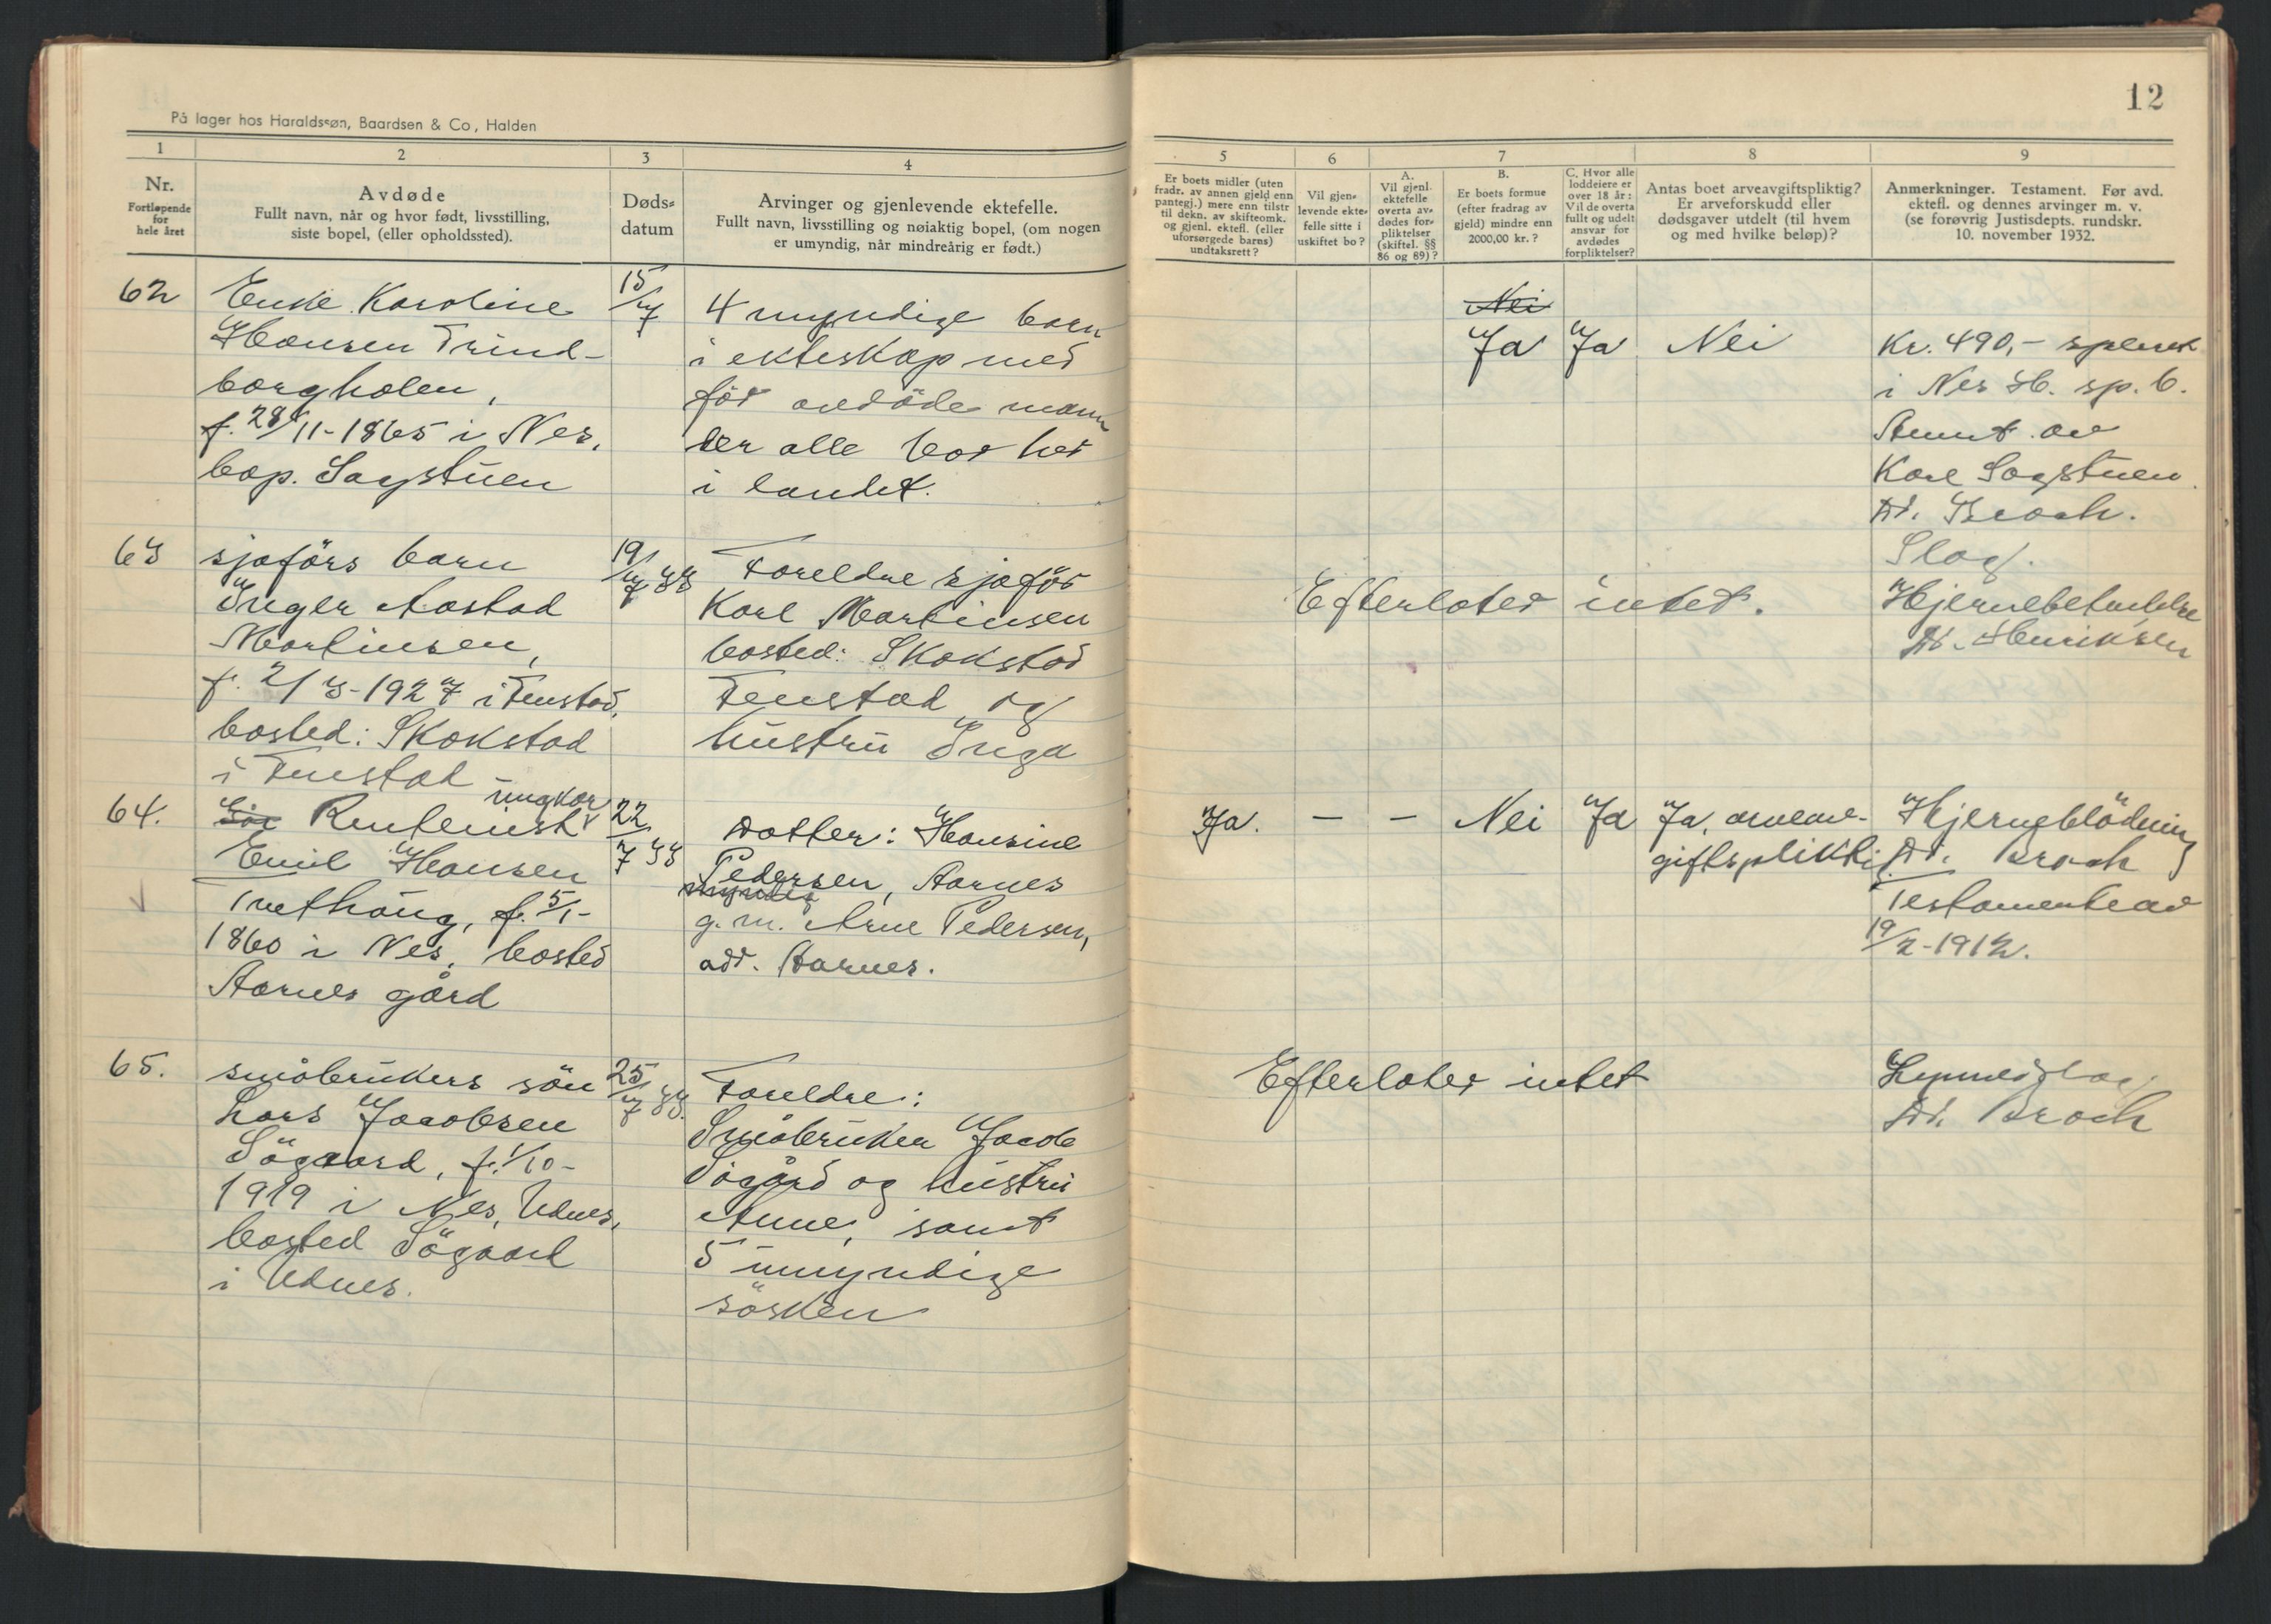 På lager hos Haraldssøn, Baardsen & Co, Halden
12
1
2
3
4
5
6
7
8
9
Nr.
Fortløpende
for
hele året
Avdøde
Fullt navn, når og hvor født, livsstilling,
siste bopel, (eller opholdssted).
Døds-
datum
Arvinger og gjenlevende ektefelle.
Fullt navn, livsstilling og nøiaktig bopel, (om nogen
er umyndig, når mindreårig er født.)
Er boets midler (uten
fradr. av annen gjeld enn
pantegj.) mere enn tilstr
til dekn. av skifteomk.
og gjenl. ektefl. (eller
uforsørgede barns)
undtaksrett?
Vil gjen-
levende ekte-
felle sitte i
uskiftet bo?
A.
Vil gjenl.
ektefelle
overta av-
dødes for-
pliktelser
(skiftel. §§
86 og 89)?
B.
Er boets formue
(efter fradrag av
gjeld) mindre enn
2000,00 kr.?
C. Hvor alle
loddeiere er
over 18 år:
Vil de overta
fullt og udelt
ansvar for
avdødes
forpliktelser?
Antas boet arveavgiftspliktig?
Er arveforskudd eller
dødsgaver utdelt (til hvem
og med hvilke beløp)?
Anmerkninger. Testament. Før avd.
ektefl. og dennes arvinger m. v.
(se forøvrig Justisdepts. rundskr.
10. november 1932.
62
Enke Karoline
Hansen Trind-
borgholen,
f. 28/11-1865 i Nes,
bop. Sagstuen
15/7
4 myndige barn
i ekteskap med
før avdöde mann
der alle bor her
i landet.
Nei
Ja
Ja
Nei
Kr. 490,-
i Nes H. sp. b.
Anmt. av
Karl Sagstuen.
Dr. Broch.
Slag.
63
sjaförs barn
Inger Aastad
Martinsen,
f. 2/3-1927 i Fenstad,
bosted: Skokstad
i Fenstad
19/7 33
Foreldre sjaför
Karl Martinsen
bosted: Skokstad
Fenstad og
hustru Inga
Efterlater intet.
Hjernebetendelse
Dr. Henriksen
64.
ungkar
Rentenist
Emil Hansen
Tvethaug, f. 5/1-
1860 i Nes, bosted
Aarnes gård
22/7 33
Datter: Hansine
Pedersen, Aarnes
myndig
g. m. Arne Pedersen,
adr. Aarnes.
Ja.
-
-
Nei
Ja
Ja, arveav-
giftspliktig
Hjerneblödning
Dr. Broch
Testamente av
19/2-1912.
65.
småbrukers sön
Lars Jacobsen
Sögaard, f. 1/10-
1919 i Nes, Udnes,
bosted Sögaard
i Udnes.
25/7 33.
Foreldre:
Småbruker Jacob
Sögård og hustru
Anne, samt
5 umyndige
sösken
Efterlater intet
Dr. Broch